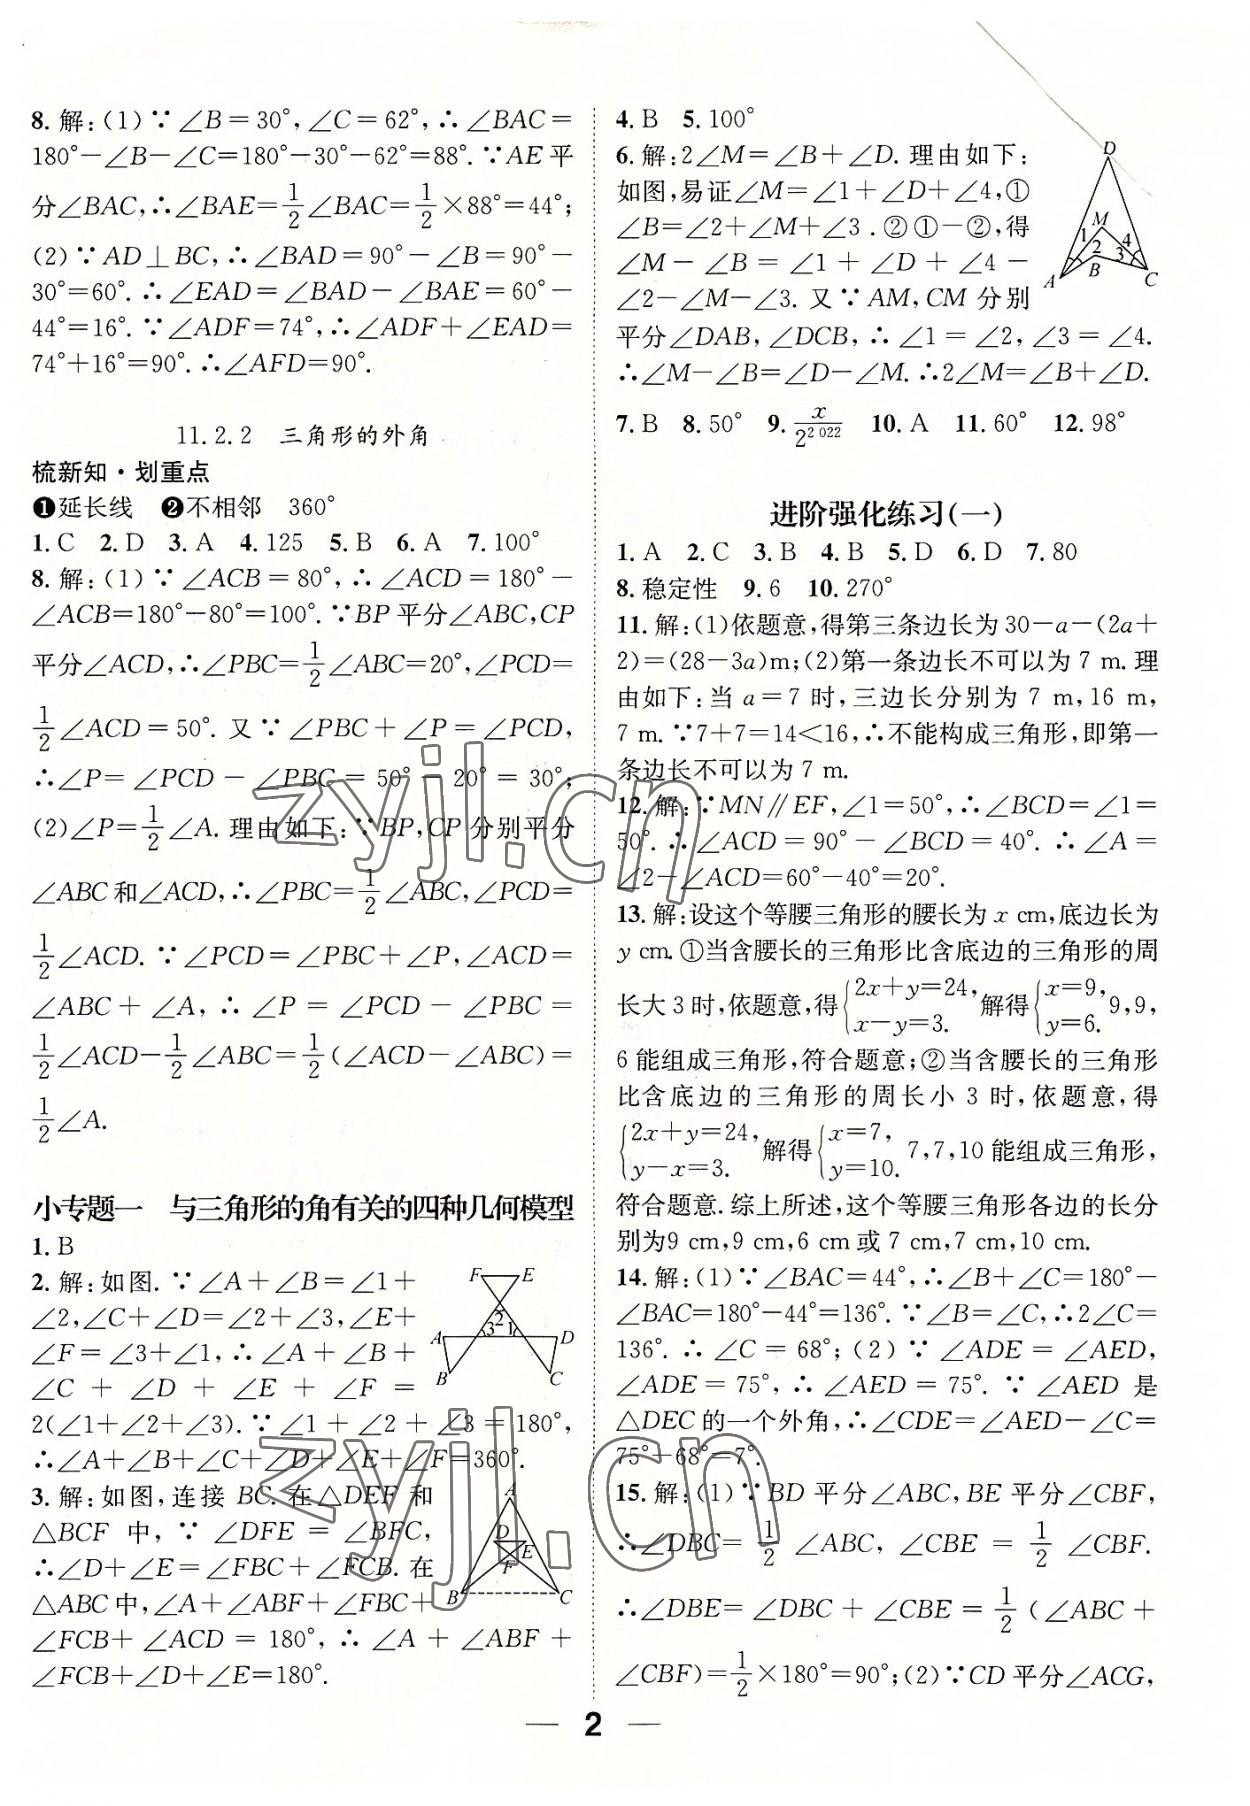 8. 解:(1)∵∠B=30°,∠C=62°,∴∠BAC=
180°-∠B-∠C=180°-30°-62°=88°.∵AE平
分∠BAC,∴∠BAE=1/2∠BAC=1/2×88°=44°;
(2)∵AD⊥BC,∴∠BAD=90°-∠B=90°-
30°=60°.∴∠EAD=∠BAD-∠BAE=60°-
44°=16°.∵∠ADF=74°,∴∠ADF+∠EAD=
74°+16°=90°.∴∠AFD=90°.
11.2.2 三角形的外角
梳新知·划重点
❶延长线 ❷不相邻 360°
1. C 2. D 3. A 4. 125 5. B 6. A 7. 100°
8. 解:(1)∵∠ACB=80°,∴∠ACD=180°-
∠ACB=180°-80°=100°.∵BP平分∠ABC,CP
平分∠ACD,∴∠PBC=1/2∠ABC=20°,∠PCD=
1/2∠ACD=50°.又∵∠PBC+∠P=∠PCD,
∴∠P=∠PCD-∠PBC=50°-20°=30°;
(2)∠P=1/2∠A.理由如下:∵BP,CP分别平分
∠ABC和∠ACD,∴∠PBC=1/2∠ABC,∠PCD=
1/2∠ACD.∵∠PCD=∠PBC+∠P,∠ACD=
∠ABC+∠A,∴∠P=∠PCD-∠PBC=
1/2∠ACD-1/2∠ABC=1/2(∠ACD-∠ABC)=
1/2∠A.
小专题一 与三角形的角有关的四种几何模型
1. B
2. 解:如图.∵∠A+∠B=∠1+
∠2,∠C+∠D=∠2+∠3,∠E+
∠F=∠3+∠1,∴∠A+∠B+
∠C+∠D+∠E+∠F=
2(∠1+∠2+∠3).∵∠1+∠2+∠3=180°,
∴∠A+∠B+∠C+∠D+∠E+∠F=360°.
F E
A 3 2 1 D
B C
3. 解:如图,连接BC.在△DEF和
△BCF中,∵∠DFE=∠BFC,
∴∠D+∠E=∠FBC+∠FCB.在
△ABC中,∠A+∠ABF+∠FBC+
∠FCB+∠ACD=180°,∴∠A+∠ABF+
∠FCB+∠D+∠E=180°.
A
D
E
F
B C
4. B 5. 100°
6. 解:2∠M=∠B+∠D.理由如下:
如图,易证∠M=∠1+∠D+∠4,①
∠B=∠2+∠M+∠3.②①-②,得
∠M-∠B=∠1+∠D+∠4-
∠2-∠M-∠3.又∵AM,CM分别
平分∠DAB,∠DCB,∴∠1=∠2,∠3=∠4.
∴∠M-∠B=∠D-∠M.∴2∠M=∠B+∠D.
D
M
1 4
2 3
A B C
7. B 8. 50° 9. x/2^2 022 10. A 11. 60° 12. 98°
进阶强化练习(一)
1. A 2. C 3. B 4. B 5. D 6. D 7. 80
8. 稳定性 9. 6 10. 270°
11. 解:(1)依题意,得第三条边长为30-a-(2a+
2)=(28-3a)m;(2)第一条边长不可以为7 m.理
由如下:当a=7时,三边长分别为7 m,16 m,
7 m.∵7+7=14<16,∴不能构成三角形,即第一
条边长不可以为7 m.
12. 解:∵MN∥EF,∠1=50°,∴∠BCD=∠1=
50°.∴∠ACD=90°-∠BCD=40°.∴∠A=
∠2-∠ACD=60°-40°=20°.
13. 解:设这个等腰三角形的腰长为x cm,底边长为
y cm.①当含腰长的三角形比含底边的三角形的周
长大3时,依题意,得{2x+y=24, x-y=3. 解得{x=9, y=6. 9,9,
6能组成三角形,符合题意;②当含腰长的三角形
比含底边的三角形的周长小3时,依题意,得
{2x+y=24, y-x=3. 解得{x=7, y=10. 7,7,10能组成三角形,
符合题意.综上所述,这个等腰三角形各边的长分
别为9 cm,9 cm,6 cm或7 cm,7 cm,10 cm.
14. 解:(1)∵∠BAC=44°,∴∠B+∠C=180°-
∠BAC=180°-44°=136°.∵∠B=∠C,∴2∠C=
136°.∴∠C=68°;(2)∵∠ADE=∠AED,
∠ADE=75°,∴∠AED=75°.∵∠AED是
△DEC的一个外角,∴∠CDE=∠AED-∠C=
75°-68°=7°.
15. 解:(1)∵BD平分∠ABC,BE平分∠CBF,
∴∠DBC=1/2∠ABC,∠CBE=1/2∠CBF.
∴∠DBE=∠DBC+∠CBE=1/2(∠ABC+
∠CBF)=1/2×180°=90°;(2)∵CD平分∠ACG,
— 2 —
zyjl.cn
zyjl.cn